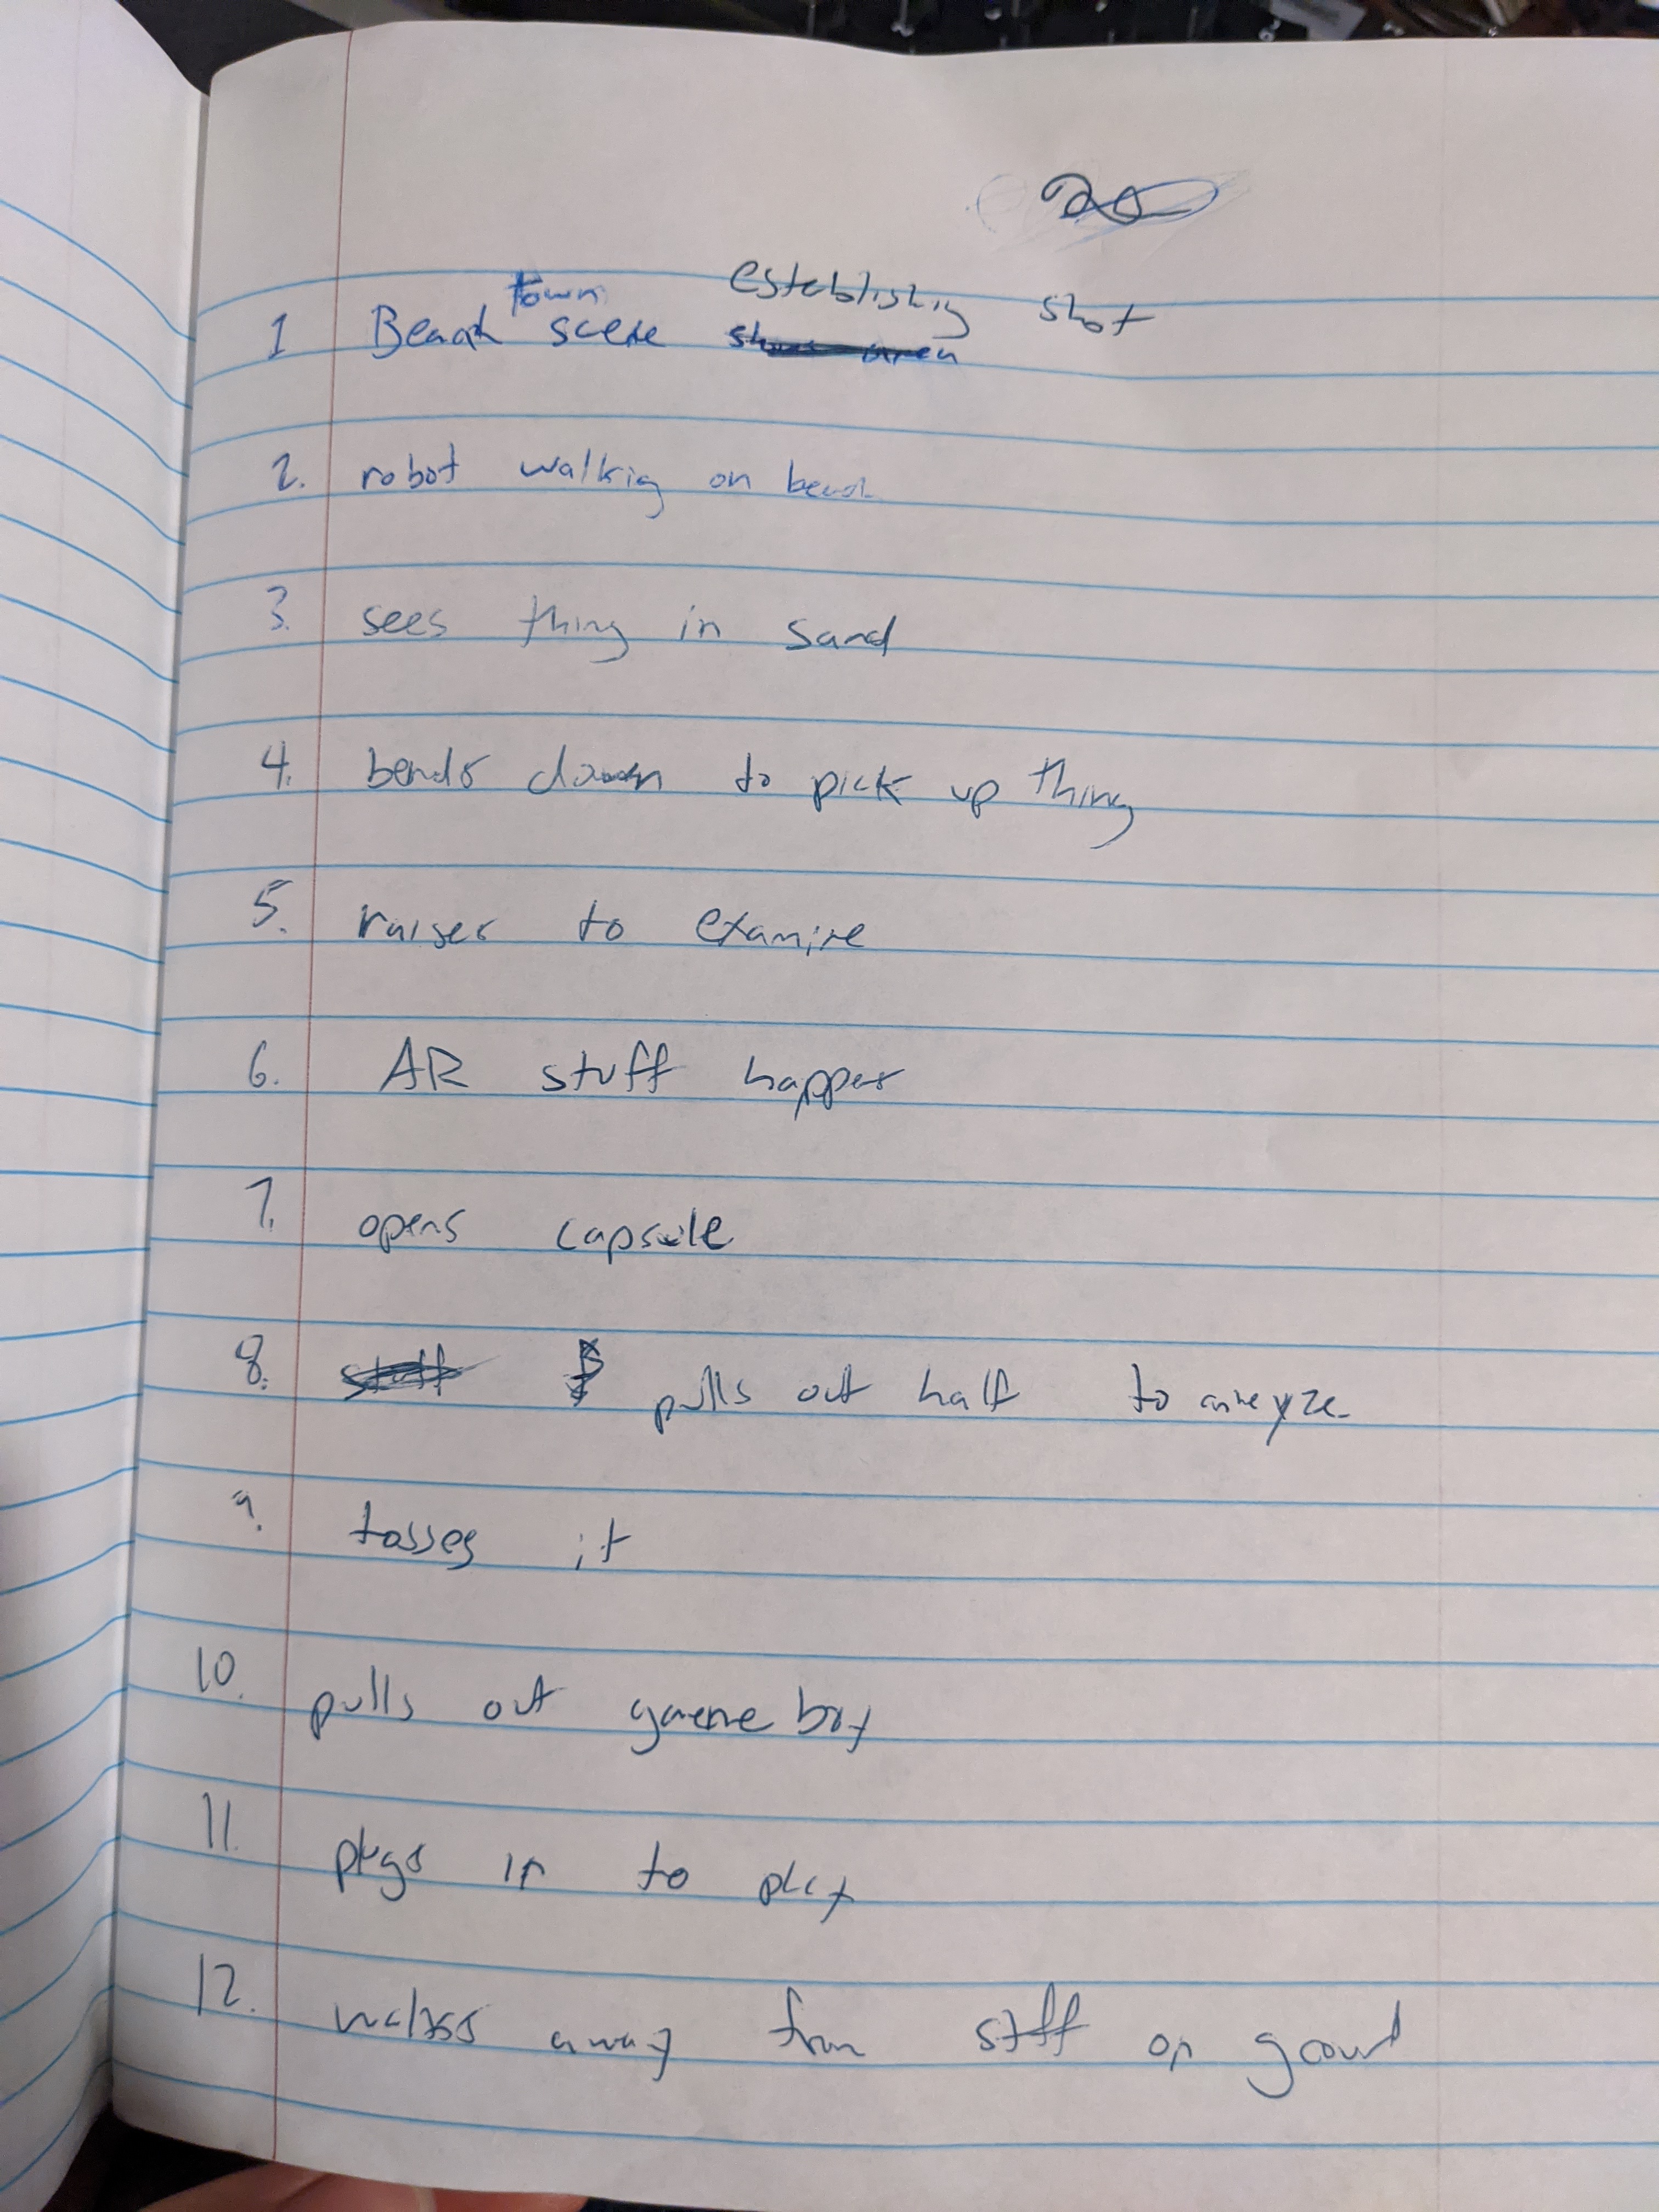 establishing shot
1 Beach town scene
2. robot walking on beach
3. sees thing in sand
4. bends down to pick up thing
5. raises to examine
6. AR stuff happens
7. opens capsule
8. pulls out half to
9. tosses it
10. pulls out game boy
11. plugs in to play
12. walks away from stuff on ground